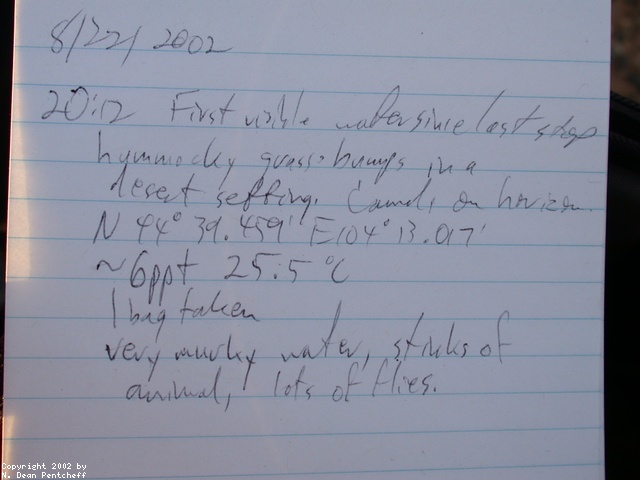 8/22/2002
20:12 First visible water since last stop
hummocky grass-bumps in a
desert setting. Camels on horizon.
N 44° 39.459' E104° 13.017'
~6ppt 25.5 °C
1 bag taken
very murky water, stinks of
animal, lots of flies.
Copyright 2002 by
N. Dean Pentcheff